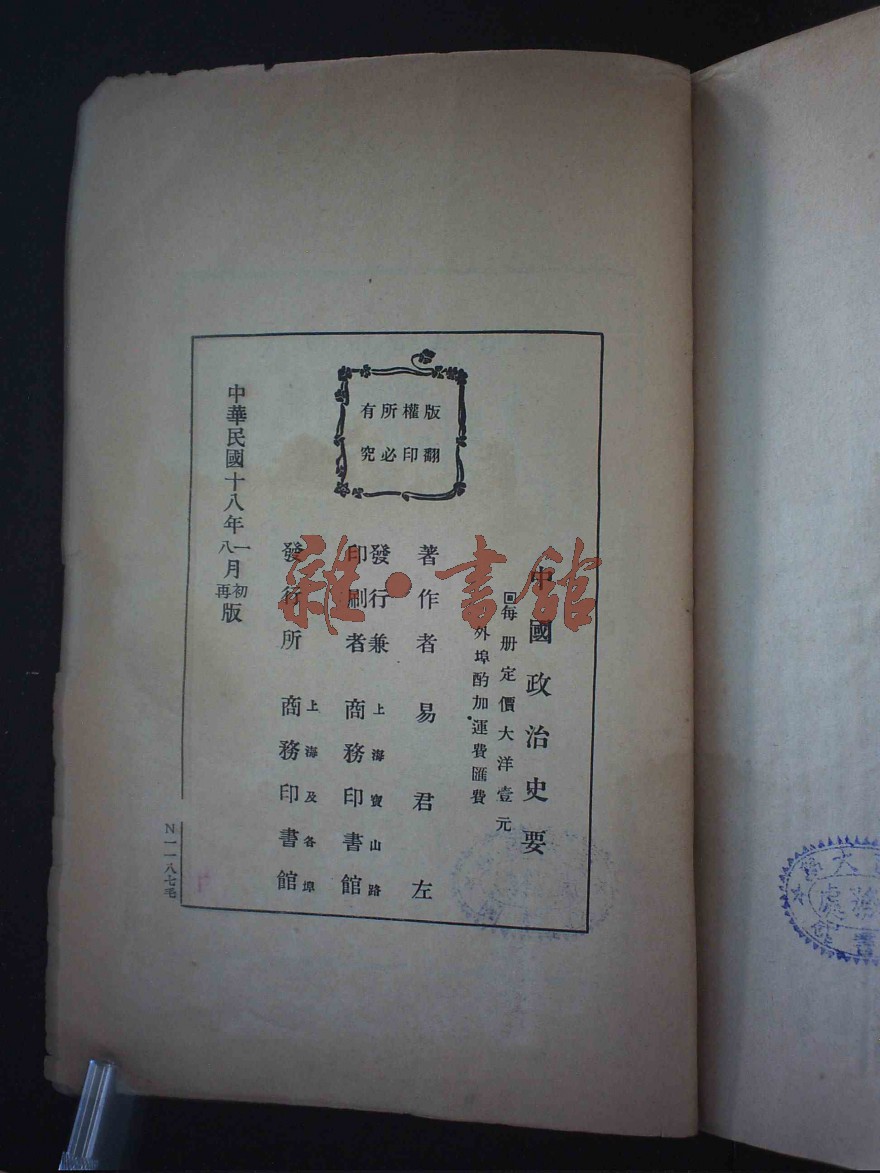 版權所有
翻印必究
中國政治史要
回每册定價大洋壹元
外埠酌加運費匯費
著作者 易君左
發行兼印刷者 上海寶山路 商務印書館
發行所 上海及各埠 商務印書館
中華民國十八年一月初版
八月再版
N一一八七毛
雜·書館
大
處務